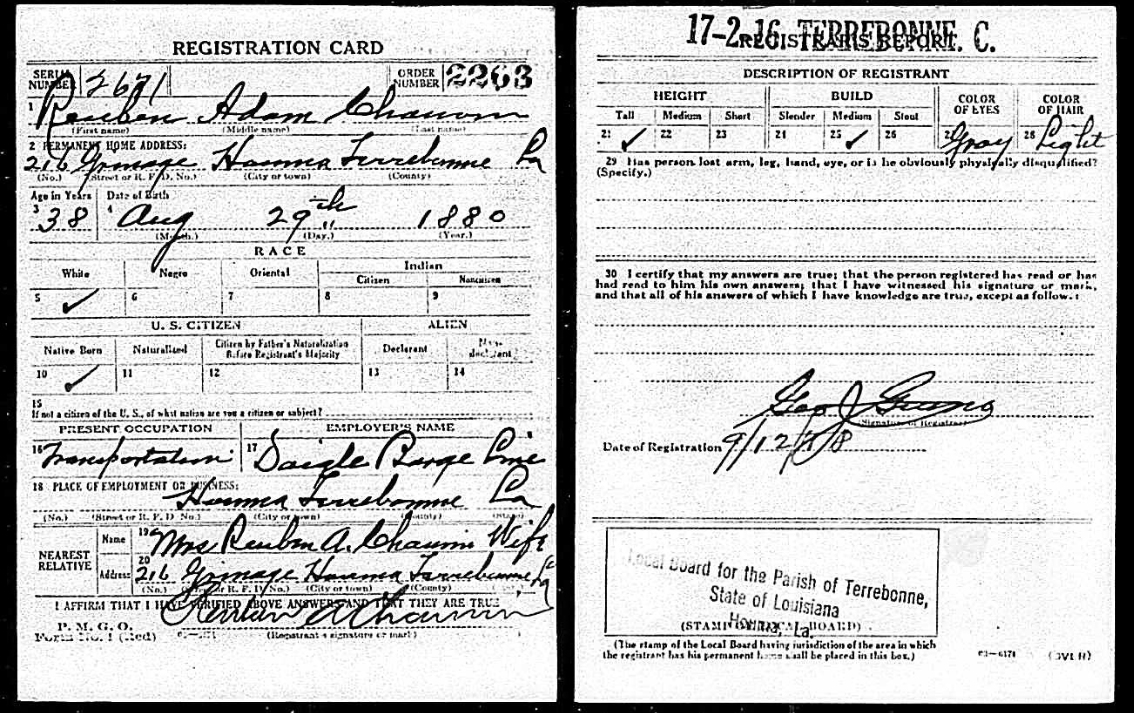 REGISTRATION CARD
SERIAL NUMBER 2671 ORDER NUMBER 2263
1 Reuben Adam Chauvin
(First name) (Middle name) (Last name)
2 PERMANENT HOME ADDRESS:
216 Grinage Houma Terrebonne La
(No.) (Street or R. F. D. No.) (City or town) (County)
Age in Years Date of Birth
3 38 4 Aug 29th 1880
(Month.) (Day.) (Year.)
RACE
White Negro Oriental Indian
Citizen Noncitizen
5 ✓ 6 7 8 9
U. S. CITIZEN ALIEN
Native Born Naturalized Citizen by Father's Naturalization Before Registrant's Majority Declarant Non-declarant
10 ✓ 11 12 13 14
15
If not a citizen of the U. S., of what nation are you a citizen or subject?
PRESENT OCCUPATION EMPLOYER'S NAME
16 Transportation 17 Daigle Barge Line
18 PLACE OF EMPLOYMENT OR BUSINESS:
Houma Terrebonne La
(No.) (Street or R. F. D. No.) (City or town) (County) (State)
NEAREST RELATIVE Name 19 Mrs Reuben A. Chauvin Wife
Address 20 216 Grinage Houma Terrebonne La
(No.) (Street or R. F. D. No.) (City or town) (County)
I AFFIRM THAT I HAVE VERIFIED ABOVE ANSWERS AND THAT THEY ARE TRUE
P. M. G. O.
Form No. 1 (Red) Reuben A Chauvin
(Registrant's signature or mark)
17-2-16 TERREBONNE. C.
REGISTRAR'S REPORT
DESCRIPTION OF REGISTRANT
HEIGHT BUILD COLOR OF EYES COLOR OF HAIR
Tall Medium Short Slender Medium Stout
21 ✓ 22 23 24 25 ✓ 26 27 Gray 28 Light
29 Has person lost arm, leg, hand, eye, or is he obviously physically disqualified?
(Specify.)
30 I certify that my answers are true; that the person registered has read or has
had read to him his own answers; that I have witnessed his signature or mark,
and that all of his answers of which I have knowledge are true, except as follows:
Geo J
(Signature of Registrar)
Date of Registration 9/12/18
Local Board for the Parish of Terrebonne,
State of Louisiana
Houma, La.
(STAMP OF LOCAL BOARD)
(The stamp of the Local Board having jurisdiction of the area in which
the registrant has his permanent home shall be placed in this box.)
03—6171 (OVER)